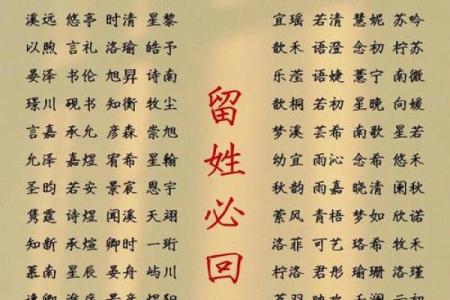 溪远 悠亭 时清 星黎
以煦 言礼 洛瑜 皓予
晏泽 书伦 旭昇 诗南
璟川 砚书 知衡 牧尘
言嘉 承允 彦森 崇旭
允泽 嘉煜 宥希 星翰
圣昀 若安 景宸 恩宇
隽霆 诗煜 闻溪 天翊
知新 承煊 卿时 一珩
慕南 星辰 晏舟 屿川
留姓必回
宜瑶 若清 慧妮 苏吟
歆禾 语澄 念初 柠苏
乐滢 语婕 薏宁 南微
歆桐 若初 星晚 向媛
梦溪 芸希 南歌 星若
幼宜 雨沁 念希 悠禾
韵南 雨嘉 晓清 阑秋
萦风 青梧 梦如 欣诺
洛菲 可艺 珞希 牧禾
柠溪 君彤 瑜珊 洛瑾